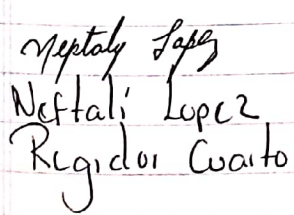 Neptaly Lopez
Neftali Lopez
Regidor Cuarto